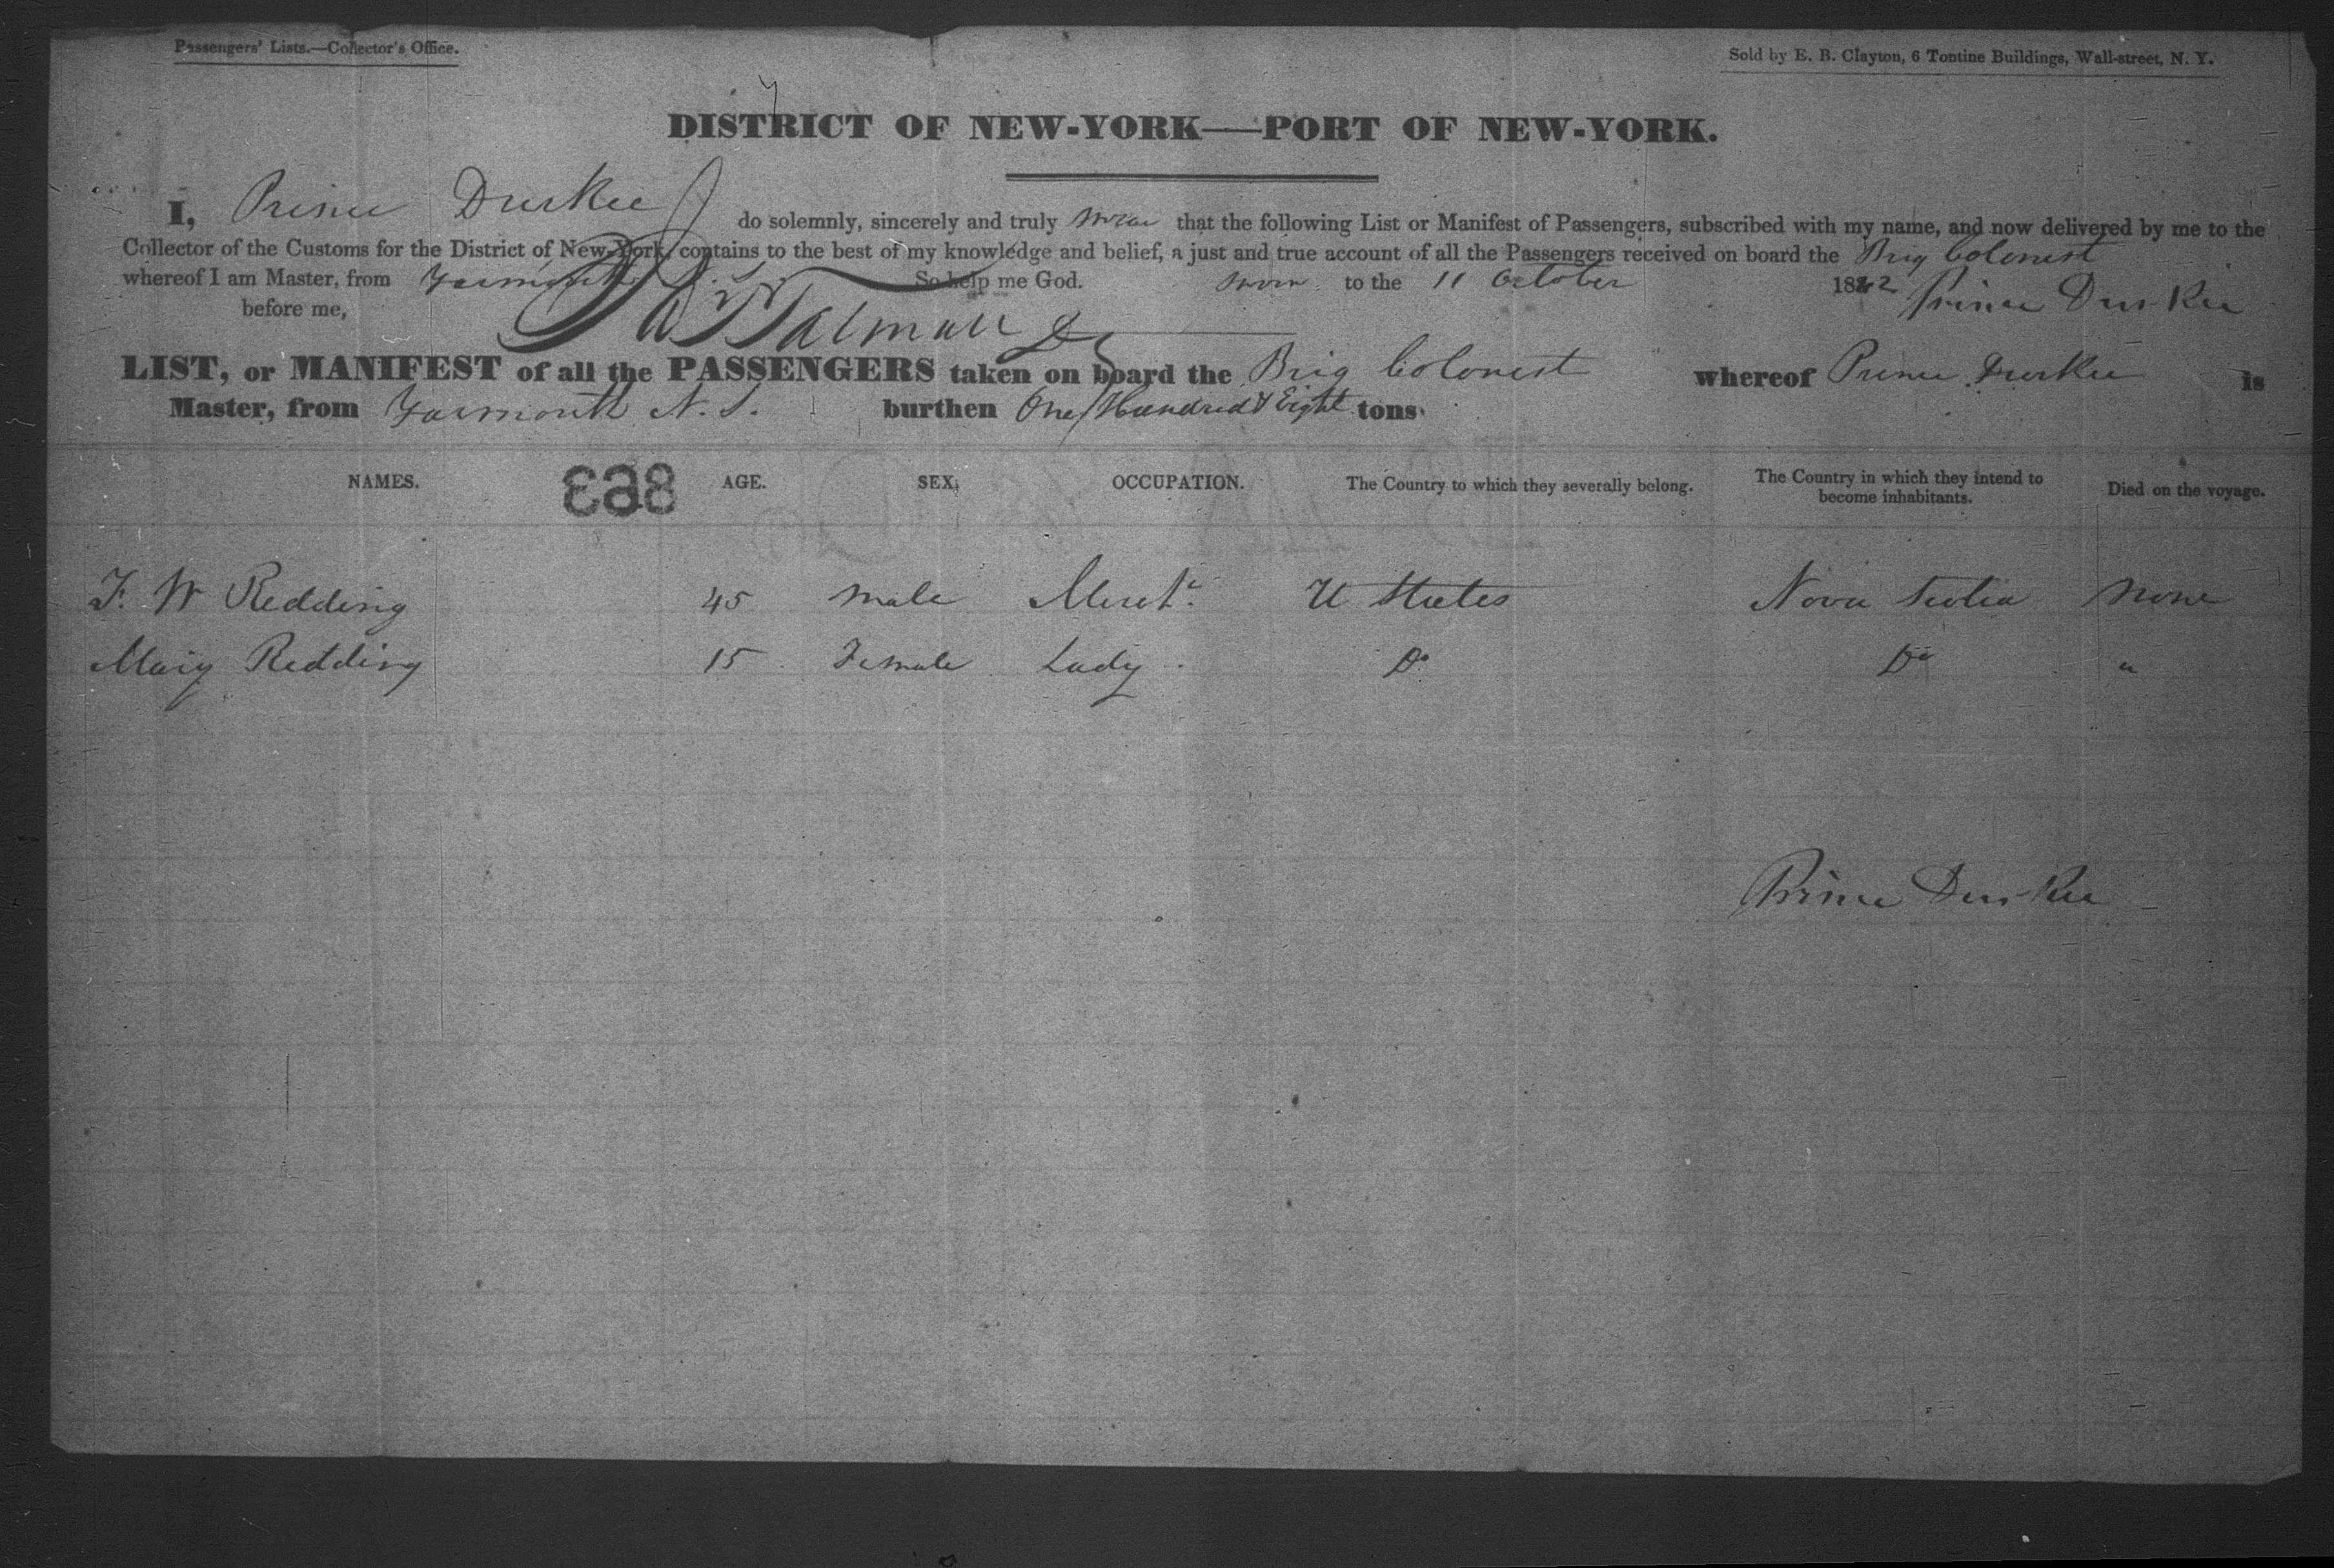 Passengers' Lists.—Collector's Office.
Sold by E. B. Clayton, 6 Tontine Buildings, Wall-street, N. Y.
DISTRICT OF NEW-YORK—PORT OF NEW-YORK.
I, Prince Durkee do solemnly, sincerely and truly swear that the following List or Manifest of Passengers, subscribed with my name, and now delivered by me to the
Collector of the Customs for the District of New-York, contains to the best of my knowledge and belief, a just and true account of all the Passengers received on board the Brig Colonist
whereof I am Master, from Yarmouth N.S. So help me God. Sworn to the 11 October 1842 Prince Durkee
before me, Talman
LIST, or MANIFEST of all the PASSENGERS taken on board the Brig Colonist whereof Prince Durkee is
Master, from Yarmouth N. S. burthen One Hundred & Eight tons
NAMES. 863 AGE. SEX. OCCUPATION. The Country to which they severally belong. The Country in which they intend to become inhabitants. Died on the voyage.
F. W Redding 45 male Mercht. U States Nova Scotia None
Mary Redding 15 Female Lady Do Do "
Prince Durkee